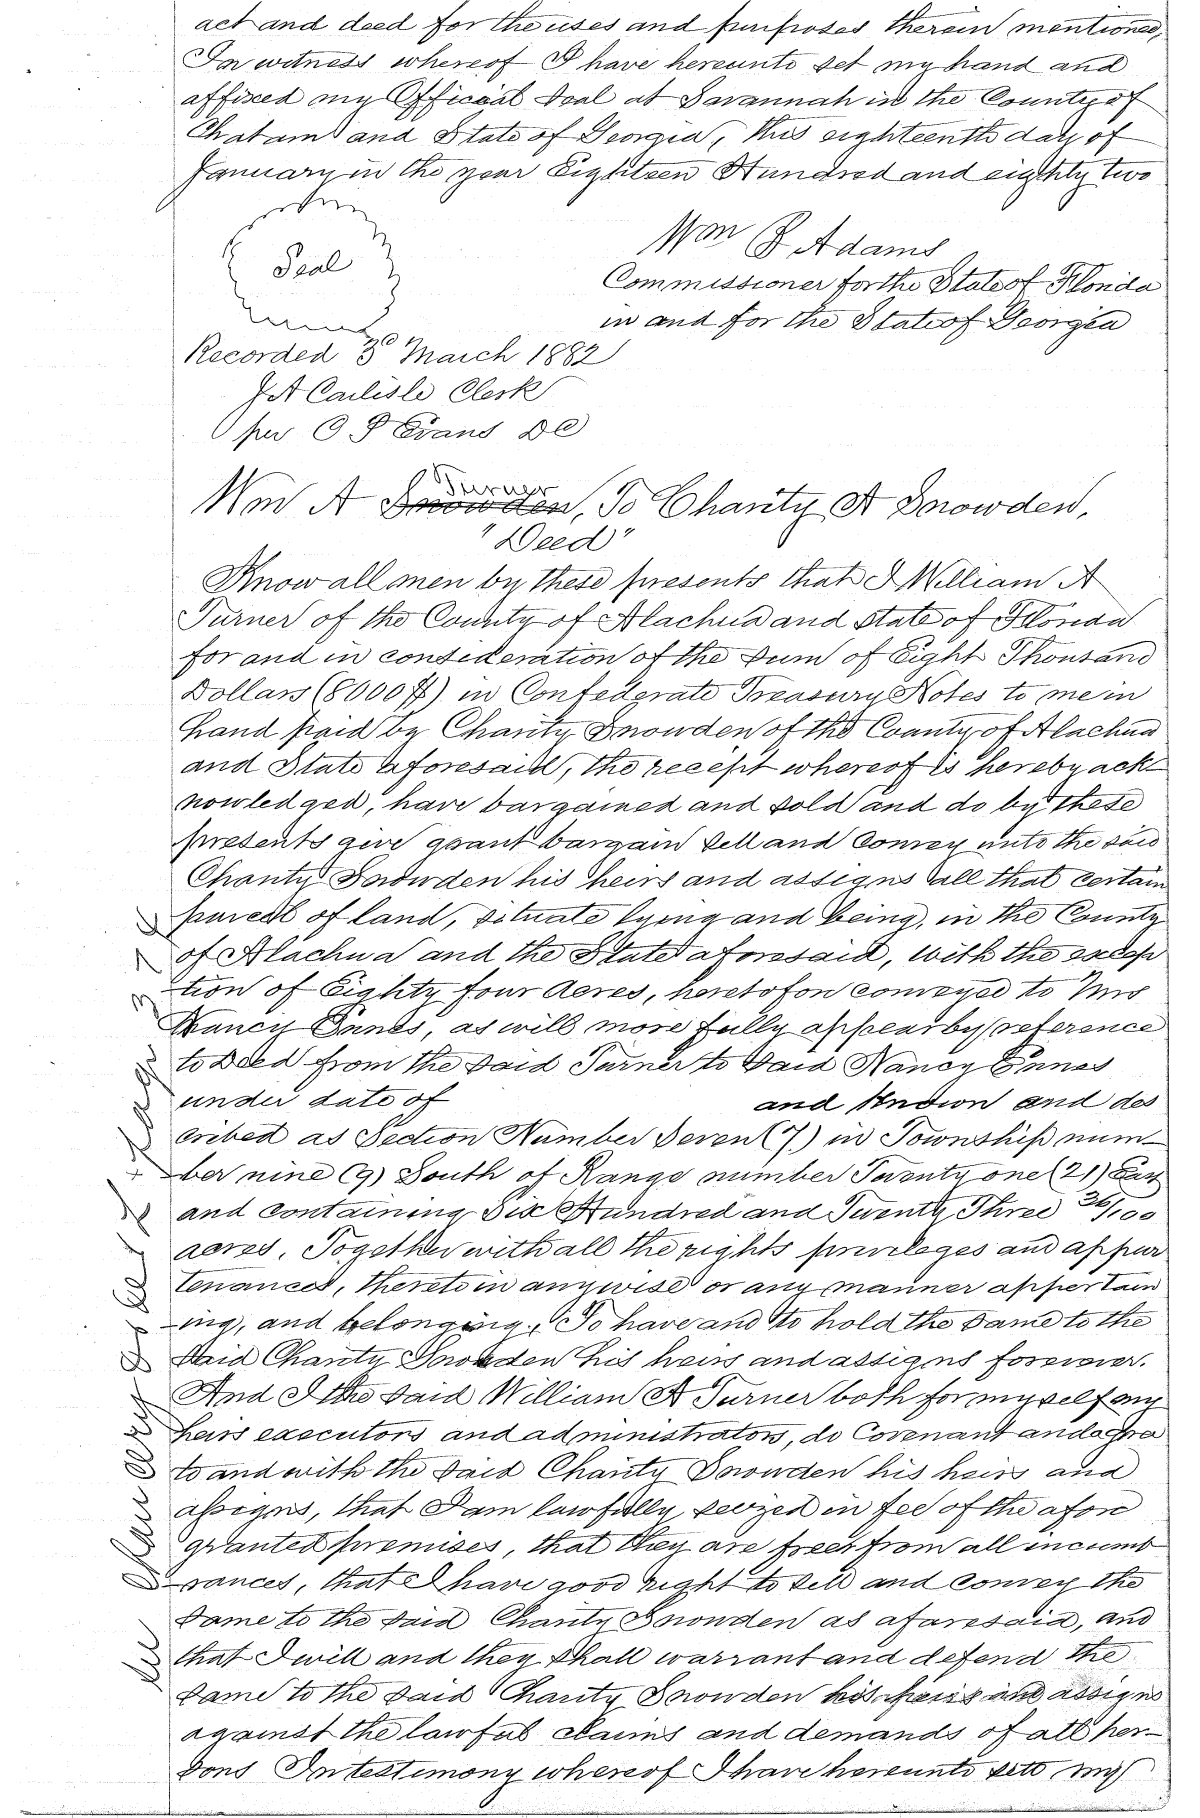 act and deed for the uses and purposes therein mentioned,
In witness whereof I have hereunto set my hand and
affixed my Official Seal at Savannah in the County of
Chatam and State of Georgia, this eighteenth day of
January in the year Eighteen Hundred and eighty two
Wm B Adams
Seal
Commissioner for the State of Florida
in and for the State of Georgia
Recorded 3d March 1882
J A Carlisle Clerk
per O P Evans DC
Turner
Wm A Snowden, To Charity A Snowden,
"Deed"
Know all men by these presents that I William A
Turner of the County of Alachua and State of Florida
for and in consideration of the sum of Eight Thousand
Dollars (8000$) in Confederate Treasury Notes to me in
hand paid by Charity Snowden of the County of Alachua
and State aforesaid, the receipt whereof is hereby ack-
nowledged, have bargained and sold and do by these
presents give grant bargain sell and convey unto the said
Charity Snowden his heirs and assigns all that certain
parcel of land, situate lying and being, in the County
of Alachua and the State aforesaid, with the excep
tion of Eighty four Acres, heretofor conveyed to Mrs
Nancy Ennes, as will more fully appear by reference
to Deed from the said Turner to said Nancy Ennes
under date of and known and des
cribed as Section Number Seven (7) in Township num-
ber nine (9) South of Range number Twenty one (21) East
and containing Six Hundred and Twenty Three 36/100
acres, Together with all the rights privileges and appur
tenances, thereto in anywise or any manner appertain
ing, and belonging, To have and to hold the same to the
said Charity Snowden his heirs and assigns forever.
And I the said William A Turner both for myself my
heirs executors and administrators, do Covenant and agree
to and with the said Charity Snowden his heirs and
assigns, that I am lawfully seized in fee of the afore
granted premises, that they are free from all incumb
rances, that I have good right to sell and convey the
same to the said Charity Snowden as aforesaid, and
that I will and they shall warrant and defend the
same to the said Charity Snowden his heirs and assigns
against the lawful claims and demands of all per-
sons In testimony whereof I have hereunto sett my